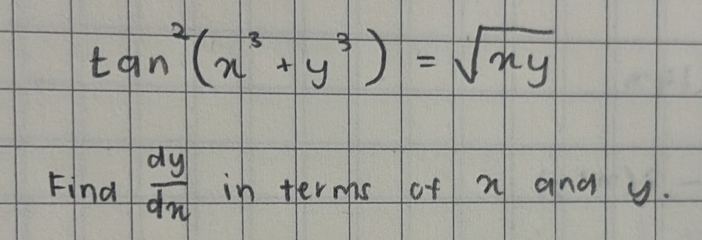 tan²(x³ + y³) = √xy
Find dy/dx in terms of x and y.